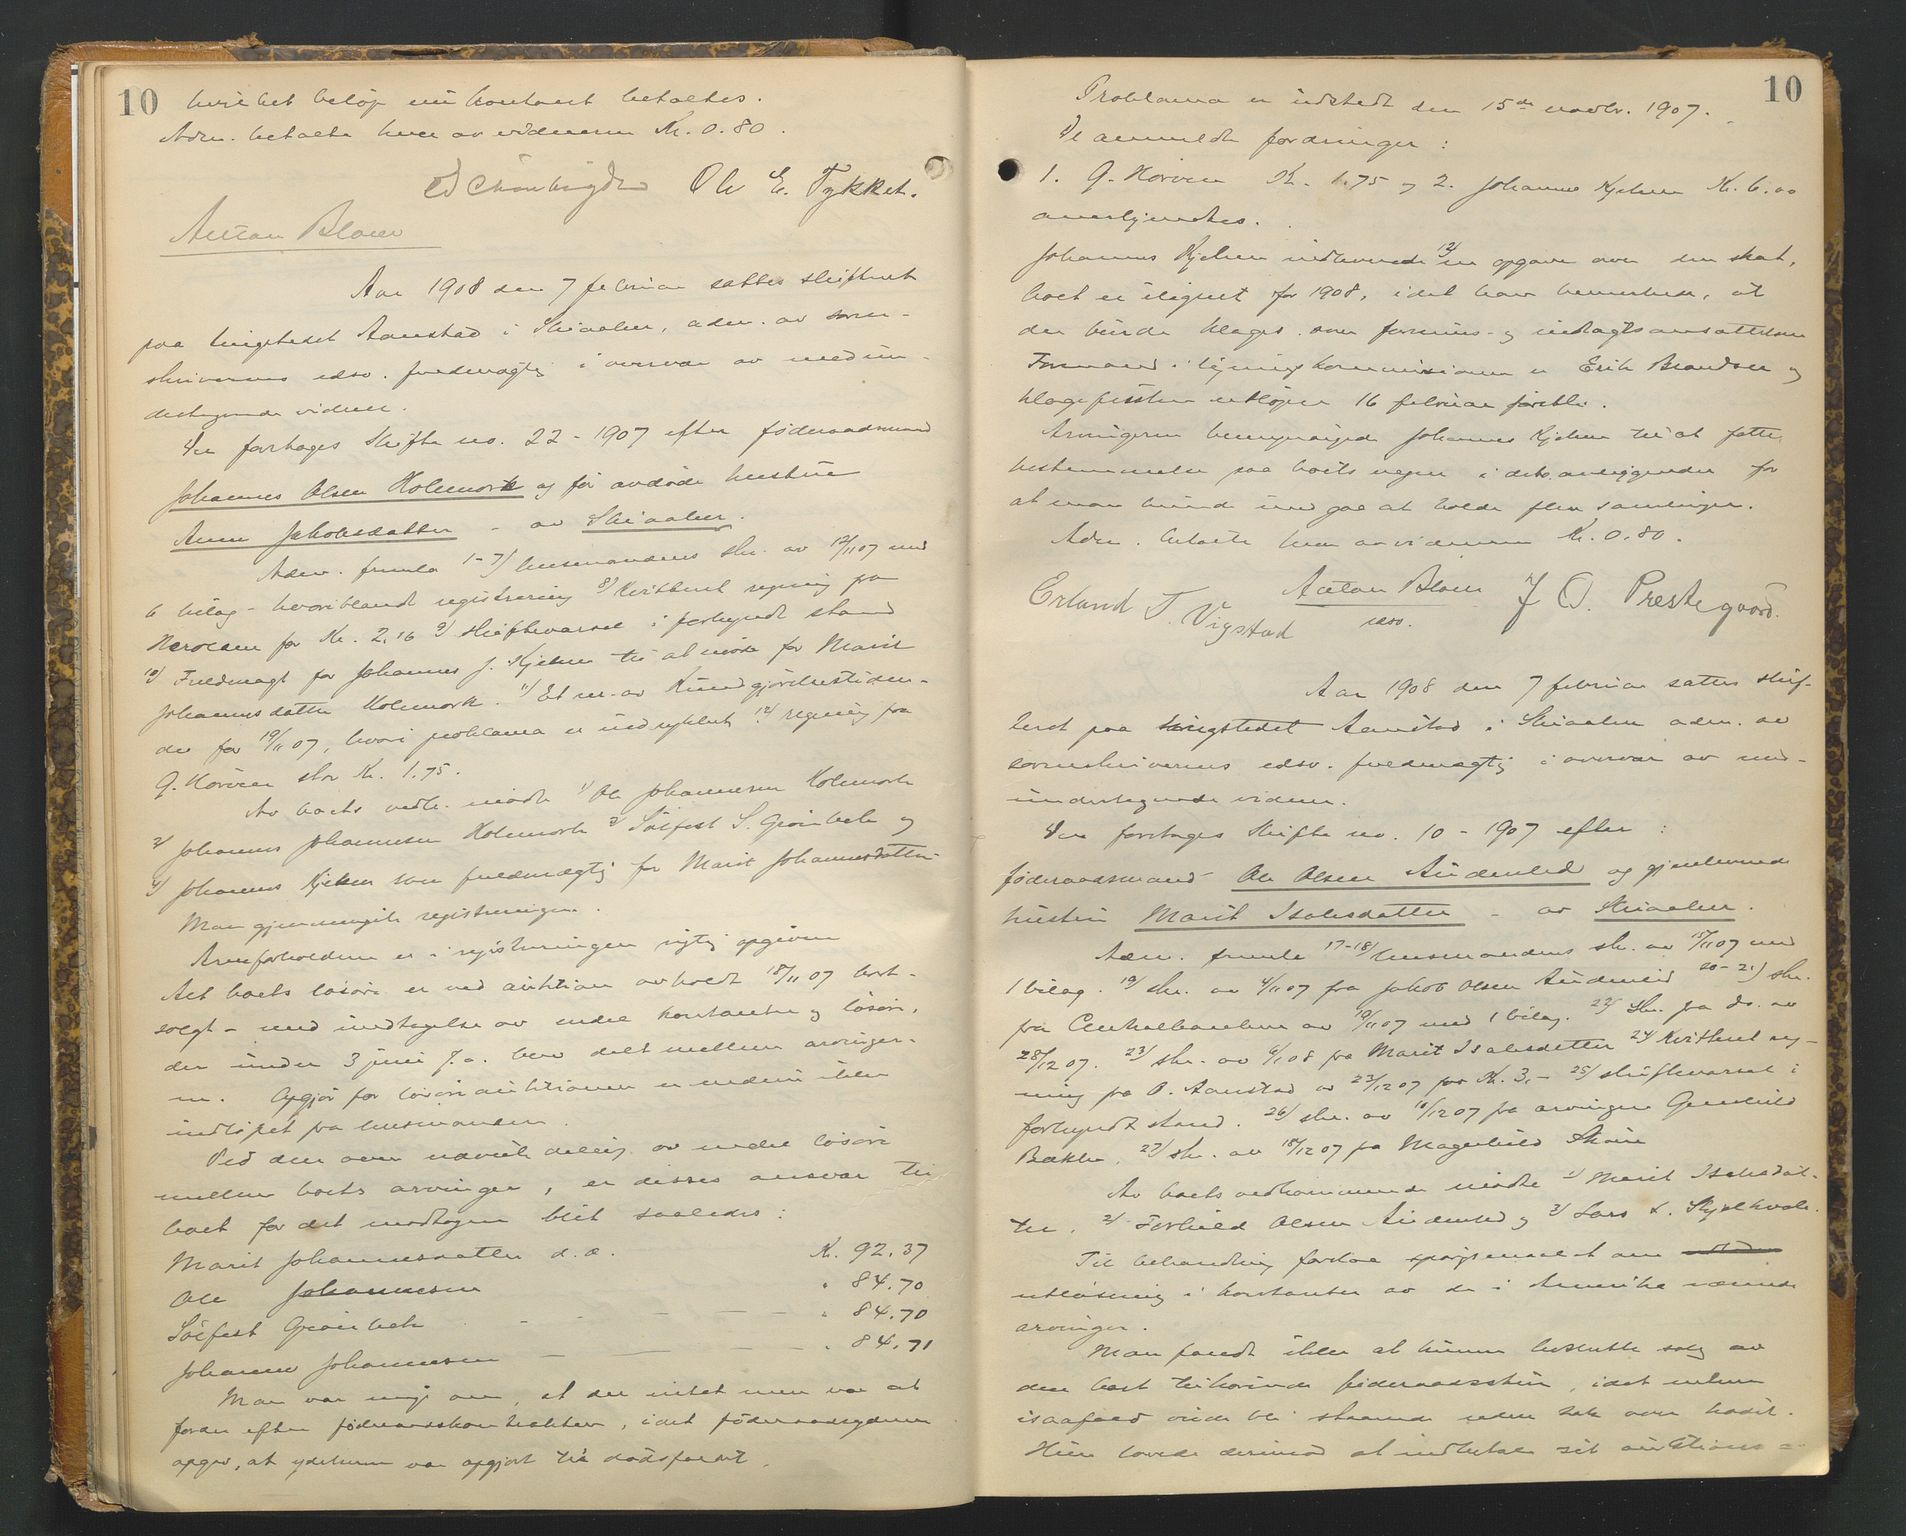 10
hvilket beløp nu kontant betaltes.
Adm. betalte hver av vidnerne Kr. 0.80.
Ole E. Tykket.
Anton Blom
Aar 1908 den 7 februar sattes skifteret
paa tingstedet Aanstad i Skiaaker, adm. av soren-
skriverens edsv. fuldmægtig i overvær av medun-
dertegnede vidner.
Der foretages Skifte no. 22 - 1907 efter føderaadsmand
Johannes Olsen Holemork og før avdøde hustru
Anne Jakobsdatter - av Skiaaker.
Adm. fremla 1-7/ lensmandens skr. av 12/11 07 med
6 bilag - hvoriblandt registrering 8/ Kvitteret regning fra
for Kr. 2.16 9/ skiftevarsel i forkyndt stand
10/ Fuldmagt for Johannes J. Kjelsen til at møte for Marit
Johannesdatter Holemork. 11/ Et nr. av Kundgjørelsestiden-
de for 19/11 07, hvori proklama er indrykket 12/ regning fra
G. Horven stor Kr. 1.75.
Av boets vedk. møtte 1/ Ole Johannesen Holemork
2/ Johannes Johannesen Holemork 3/ Sølfest S. Grønbek og
4/ Johannes Kjelsen som fuldmægtig for Marit Johannesdatter
Man gjennemgik registreringen.
Arveforholdene er i registreringen rigtig opgivne
Alt boets løsøre er ved auktion avholdt 18/11 07 bort-
solgt - med undtagelse av endel kontanter og løsøre,
der under 3 juni f.a. blev delt mellem arvinger-
ne. Opgjør for løsøreauktionen er endnu ikke
indløpet fra lensmanden.
Ved den oven nævnte deling av endel løsøre
mellem boets arvinger, er disses ansvar til
boet for det modtagne blit saaledes:
Marit Johannesdatter d.æ. Kr. 92.37
Ole Johannesen " 84.70
Sølfest Grønbek - - - - " 84.70
Johannes Johannesen - - - " 84.71
Man var enig om, at der intet mer var at
fordre efter føderaadskontrakten, idet føderaadsyderen
opgav, at ydelserne var opgjort til dødsfaldet.
10
Proklama er utstedt den 15de novbr. 1907.
De anmeldte fordringer:
1. G. Horven Kr. 1.75 og 2. Johannes Kjelsen Kr. 6.00
anerkjendtes.
Johannes Kjelsen indleverede 13/ en opgave over den skat,
boet er ilignet for 1908, idet han bemerket, at
der burde klages over formues- og indtægtsansættelsen
Formand i ligningskommissionen er Erik Brandser og
klagefristen utløper 16 februar førstk.
Arvingerne bemyndiget Johannes Kjelsen til at fatte
bestemmelse paa boets vegne i dette anliggende for
at man kunde undgaa at holde flere samlinger.
Adm. betalte hver av vidnerne Kr. 0.80.
Erland T. Vigstad
Anton Blom
edsv.
J O. Prestegaard.
Aar 1908 den 7 februar sattes skif-
teret paa tingstedet Aanstad i Skiaaker adm. av
sorenskriverens edsv. fuldmægtig i overvær av med-
undertegnede vidner.
Der foretages Skifte no. 10 - 1907 efter:
føderaadsmand Ole Olsen Audenlid og gjenlevende
hustru Marit Isaksdatter - av Skiaaker.
Adm. fremla 17-18/ lensmandens skr. av 15/11 07 med
1 bilag. 19/ skr. av 4/11 07 fra Jakob Olsen Audenlid 20-21/ skr.
fra Centralbanken av 19/11 07 med 1 bilag. 22/ skr. fra do. av
28/12 07. 23/ skr. av 6/1 08 fra Marit Isaksdatter 24/ Kvitteret reg-
ning fra O. Aanstad av 23/12 07 for Kr. 3,- 25/ skiftevarsel i
forkyndt stand. 26/ skr. av 16/12 07 fra arvingen Gunhild
Bakke. 27/ skr. av 18/12 07 fra Magnhild
Av boets vedkommende møtte 1/ Marit Isaksdat-
ter, 2/ Torhild Olsen Audenlid og 3/ Lars L. Skjelkvale.
Til behandling forelaa spørgsmaalet om
utløsning i kontanter av de i Amerika værende
arvinger.
Man fandt ikke at kunne beslutte salg av
den boet tilhørende føderaadsstue, idet enken
isaafald vilde bli staaende uden tak over hodet.
Hun lovede derimod at indbetale sit auktions-